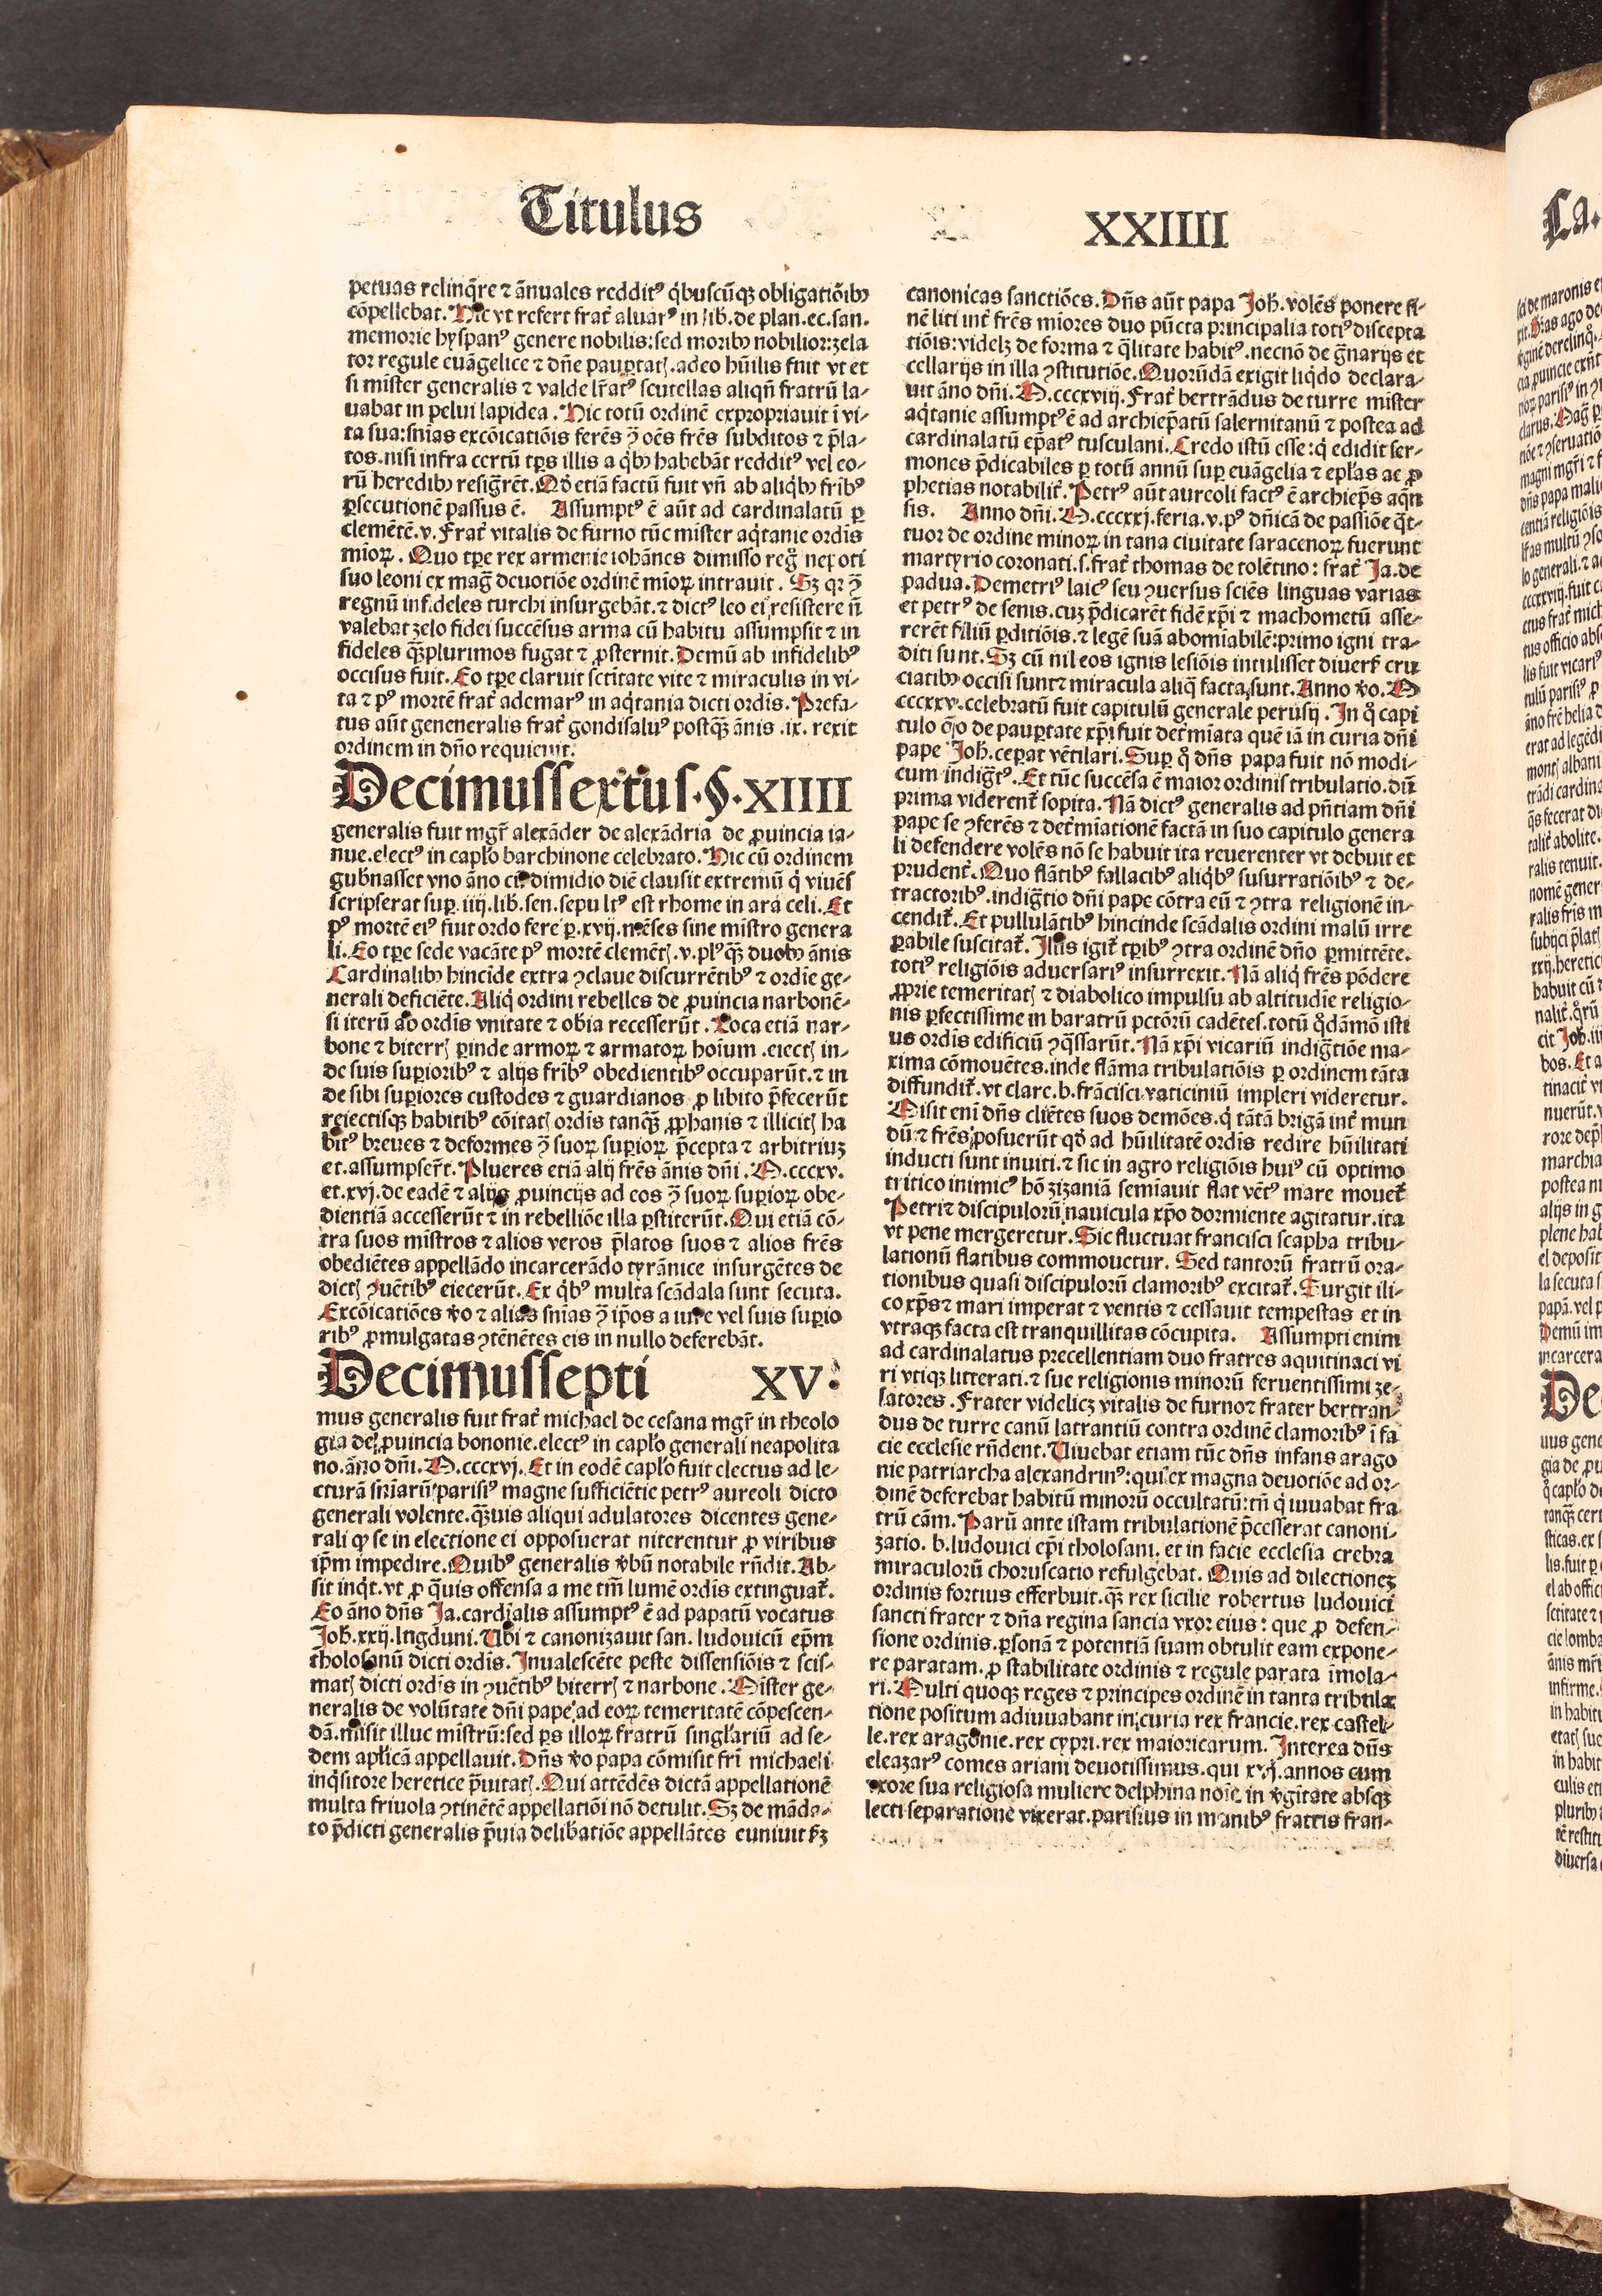 Titulus
XXIIII
petuas relinq̃re ⁊ ãnuales reddit⁹ q̃buscũqꝫ obligatiõibꝰ
cõpellebat. Hic vt refert frat̃ aluar⁹ in lib. de plan. ec. san.
memorie hyspan⁹ genere nobilis: sed moribꝰ nobilior: zela
tor regule euãgelice ⁊ dñe paup̱tatꝭ. adeo hũilis fuit vt et
si mister generalis ⁊ valde lr̃at⁹ scutellas aliqñ fratrũ la-
uabat in pelui lapidea. Hic totũ ordinẽ expropriauit ĩ vi-
ta sua: sñias excõicatiõis ferẽs ꝯ̃ oẽs frẽs subditos ⁊ p̃la-
tos. nisi infra certũ tp̃s illis a q̃bꝰ habebãt reddit⁹ vel eo-
rũ heredibꝰ resig̃rẽt. Qđ etiã factũ fuit vñ ab aliq̃bꝰ frĩb⁹
ꝑsecutionẽ passus ẽ. Assumpt⁹ ẽ aũt ad cardinalatũ ꝑ
clemẽtẽ. v. Frat̃ vitalis de furno tũc mister aq̃tanie ordĩs
mĩoꝝ. Quo tꝑe rex armenie iohãnes dimisso reg̃ nepoti
suo leoni ex mag̃ deuotiõe ordinẽ mĩoꝝ intrauit. Sꝫ qr ꝯ̃
regnũ infideles turchi insurgebãt. ⁊ dict⁹ leo ei resistere ñ
valebat zelo fidei succẽsus arma cũ habitu assumpsit ⁊ in
fideles q̃ꝫplurimos fugat ⁊ ꝓsternit. Demũ ab infidelib⁹
occisus fuit. Eo tꝑe claruit sctitate vite ⁊ miraculis in vi-
ta ⁊ p⁹ mortẽ frat̃ ademar⁹ in aq̃tania dicti ordis. Prefa-
tus aũt geneneralis frat̃ gondisalu⁹ postq̃ꝫ ãnis .ix. rexit
ordinem in dño requieuit.
Decimussextus. §. XIIII
generalis fuit mgr̃ alexãder de alexãdria de ꝓuincia ia-
nue. elect⁹ in capl̃o barchinone celebrato. Hic cũ ordinem
gub̃nasset vno ãno cũ dimidio diẽ clausit extremũ q̃ viuẽs
scripserat sup̱. iiij. lib. sen. sepult⁹ est rhome in ara celi. Et
p⁹ mortẽ ei⁹ fiut ordo fere ꝑ .xvij. mẽses sine mistro genera
li. Eo tꝑe sede vacãte p⁹ mortẽ clemẽtꝭ. v. pl⁹ q̃ꝫ duobꝰ ãnis
Cardinalibꝰ hincĩde extra ꝯclaue discurrẽtib⁹ ⁊ ordĩe ge-
nerali deficiẽte. Aliq̃ ordini rebelles de ꝓuincia narbonẽ-
si iterũ ab ordis vnitate ⁊ obĩa recesserũt. Loca etiã nar-
bone ⁊ biterrꝭ ꝑinde armoꝝ ⁊ armatoꝝ hoĩum .eiectꝭ in-
de suis sup̱iorib⁹ ⁊ alijs frĩb⁹ obedientib⁹ occuparũt. ⁊ in
de sibi sup̱iores custodes ⁊ guardianos ꝓ libito p̃fecerũt
reiectisqꝫ habitib⁹ cõitatꝭ ordis tanq̃ꝫ ꝓphanis ⁊ illicitꝭ ha
bit⁹ breues ⁊ deformes ꝯ̃ suoꝝ sup̱ioꝝ p̃cepta ⁊ arbitriuꝫ
et. assumpser̃t. Plueres etiã alij frẽs ãnis dñi. M.cccxv.
et. xvj. de eadẽ ⁊ alijs ꝓuincijs ad eos ꝯ̃ suoꝝ sup̱ioꝝ obe-
dientiã accesserũt ⁊ in rebelliõe illa ꝑstiterũt. Qui etiã cõ-
tra suos mĩstros ⁊ alios veros p̃latos suos ⁊ alios frẽs
obediẽtes appellãdo incarcerãdo tyrãnice insurgẽtes de
dictꝭ ꝯuẽtib⁹ eiecerũt. Ex q̃b⁹ multa scãdala sunt secuta.
Excõicatiões v̾o ⁊ alias sñias ꝯ̃ ip̃os a iure vel suis sup̱io
rib⁹ ꝓmulgatas ꝯtẽnẽtes eis in nullo deferebãt.
Decimussepti XV.
mus generalis fuit frat̃ michael de cesana mgr̃ in theolo
gia de ꝓuincia bononie. elect⁹ in capl̃o generali neapolita
no. ãño dñi. M.cccxvj. Et in eodẽ capl̃o fuit electus ad le-
cturã sñiarũ parisi⁹ magne sufficiẽtie petr⁹ aureoli dicto
generali volente. q̃ꝫuis aliqui adulatores dicentes gene-
rali ꝙ se in electione ei opposuerat niterentur ꝓ viribus
ip̃m impedire. Quib⁹ generalis v̾bũ notabile rñdit. Ab-
sit inq̃t. vt ꝓ q̃uis offensa a me tm̃ lumẽ ordis extinguat̃.
Eo ãno dñs Ja. cardĩalis assumpt⁹ ẽ ad papatũ vocatus
Joh̃. xxij. lugduni. Vbi ⁊ canonizauit san. ludouicũ ep̃m
tholosanũ dicti ordis. Inualescẽte peste dissensiõis ⁊ scis-
matꝭ dicti ordis in ꝯuẽtib⁹ biterrꝭ ⁊ narbone. Mister ge-
neralis de volũtate dñi pape ad eoꝝ temeritatẽ cõpescen-
dã. misit illuc mĩstrũ: sed ꝑs illoꝝ fratrũ singl̃ariũ ad se-
dem apl̃icã appellauit. Dñs v̾o papa cõmisit frĩ michaeli
inq̃sitore heretice p̃uitatꝭ. Qui attẽdẽs dictã appellationẽ
multa friuola ꝯtinẽtẽ appellatiõi nõ detulit. Sꝫ de mãda-
to p̃dicti generalis p̃uia delib̃atiõe appellãtes
canonicas sanctiões. Dñs aũt papa Joh̃. volẽs ponere fi-
nẽ liti int̃ frẽs mĩores duo pũcta principalia toti⁹ discepta
tiõis: videlꝫ de forma ⁊ q̃litate habit⁹. necnõ de g̃narijs et
cellarijs in illa ꝯstitutiõe. Quorũdã exigit liq̃do declara-
uit ãno dñi. M.cccxviij. Frat̃ bertrãdus de turre mister
aq̃tanie assumpt⁹ ẽ ad archiep̃atũ salernitanũ ⁊ postea ad
cardinalatũ ep̃at⁹ tusculani. Credo istũ esse: q̃ edidit ser-
mones p̃dicabiles ꝑ totũ annũ sup̱ euãgelia ⁊ epl̃as ac ꝓ
phetias notabilit̃. Petr⁹ aũt aureoli fact⁹ ẽ archiep̃s aq̃n
sis. Anno dñi. M.cccxxj. feria. v. p⁹ dñicã de passiõe q̃t-
tuor de ordine minoꝝ in tana ciuitate saracenoꝝ fuerunt
martyrio coronati. s. frat̃ thomas de tolẽtino: frat̃ Ja. de
padua. Demetri⁹ laic⁹ seu ꝯuersus sciẽs linguas varias
et petr⁹ de senis. cuꝫ p̃dicarẽt fidẽ xp̃i ⁊ machometũ asse-
rerẽt filiũ ꝑditiõis. ⁊ legẽ suã abomiabilẽ: primo igni tra-
diti sunt. Sꝫ cũ nil eos ignis lesiõis intulisset diuers̃ cru
ciatibꝰ occisi sunt ⁊ miracula aliq̃ facta sunt. Anno v̾o. M
cccxxv. celebratũ fuit capitulũ generale perusij. In q̊ capi
tulo q̃o de paup̱tate xp̃i fuit det̃miata quẽ iã in curia dñi
pape Joh̃. ceꝑat vẽtilari. Sup̱ q̊ dñs papa fuit nõ modi-
cum indig̃t⁹. Et tũc succẽsa ẽ maior ordinis tribulatio. dũ
prima viderent̃ sopita. Nã dict⁹ generalis ad p̃ntiam dñi
pape se ꝯferẽs ⁊ det̃miationẽ factã in suo capitulo genera
li defendere volẽs nõ se habuit ita reuerenter vt debuit et
prudent̃. Quo flãtib⁹ fallacib⁹ aliq̃b⁹ susurratiõib⁹ ⁊ de-
tractorib⁹. indig̃tio dñi pape cõtra eũ ⁊ ꝯtra religionẽ in-
cendit̃. Et pullulãtib⁹ hincinde scãdalis ordini malũ irre
ꝑabile suscitat̃. Illis igit̃ tꝑib⁹ ꝯtra ordinẽ dño ꝑmittẽte.
toti⁹ religiõis aduersari⁹ insurrexit. Nã aliq̃ frẽs põdere
ꝓprie temeritatꝭ ⁊ diabolico impulsu ab altitudĩe religio-
nis ꝑfectissime in baratrũ pctõrũ cadẽtes. totũ q̊dãmõ isti
us ordis edificiũ ꝯq̃ssarũt. Nã xp̃i vicariũ indig̃tiõe ma-
xima cõmouẽtes. inde flãma tribulatiõis ꝑ ordinem tãta
diffundit̃. vt clare. b. frãcisci vaticiniũ impleri videretur.
Misit enĩ dñs cliẽtes suos demões. q̃ tãtã brigã int̃ mun
dũ ⁊ frẽs posuerũt qđ ad hũilitatẽ ordis redire hũilitati
inducti sunt inuiti. ⁊ sic in agro religiõis hui⁹ cũ optimo
tritico inimic⁹ hõ zizaniã semĩauit flat vẽt⁹ mare mouet̃
Petri ⁊ discipulorũ nauicula xp̃o dormiente agitatur. ita
vt pene mergeretur. Sic fluctuat francisci scapha tribu-
lationũ flatibus commouetur. Sed tantorũ fratrũ ora-
tionibus quasi discipulorũ clamorib⁹ excitat̃. Surgit ili-
co xp̃s ⁊ mari imperat ⁊ ventis ⁊ cessauit tempestas et in
vtraqꝫ facta est tranquillitas cõcupita. Assumpti enim
ad cardinalatus precellentiam duo fratres aquitinaci vi
ri vtiqꝫ litterati. ⁊ sue religionis minorũ feruentissimi ze-
latores. Frater videlicꝫ vitalis de furno ⁊ frater bertran-
dus de turre canũ latrantiũ contra ordinẽ clamorib⁹ ĩ fa
cie ecclesie rñdent. Viuebat etiam tũc dñs infans arago
nie patriarcha alexandrin⁹: qui ex magna deuotiõe ad or-
dinẽ deferebat habitũ minorũ occultatũ: tñ q̃ iuuabat fra
trũ cãm. Parũ ante istam tribulationẽ p̃cesserat canoni-
zatio. b. ludouici ep̃i tholosani. et in facie ecclesia crebra
miraculorũ choruscatio refulgebat. Quis ad dilectioneꝫ
ordinis fortius efferbuit. q̃ꝫ rex sicilie robertus ludouici
sancti frater ⁊ dña regina sancia vxor eius: que ꝓ defen-
sione ordinis. ꝑsonã ⁊ potentiã suam obtulit eam expone-
re paratam. ꝓ stabilitate ordinis ⁊ regule parata imola-
ri. Multi quoqꝫ reges ⁊ principes ordinẽ in tanta tribula
tione positum adiuuabant in curia rex francie. rex castel-
le. rex aragonie. rex cypri. rex maioricarum. Interea dñs
eleazar⁹ comes ariani deuotissimus. qui xvj. annos cum
vxore sua religiosa muliere delphina noĩe. in v̾gitate absqꝫ
lecti separatione vixerat. parisius in manib⁹ fratris fran-